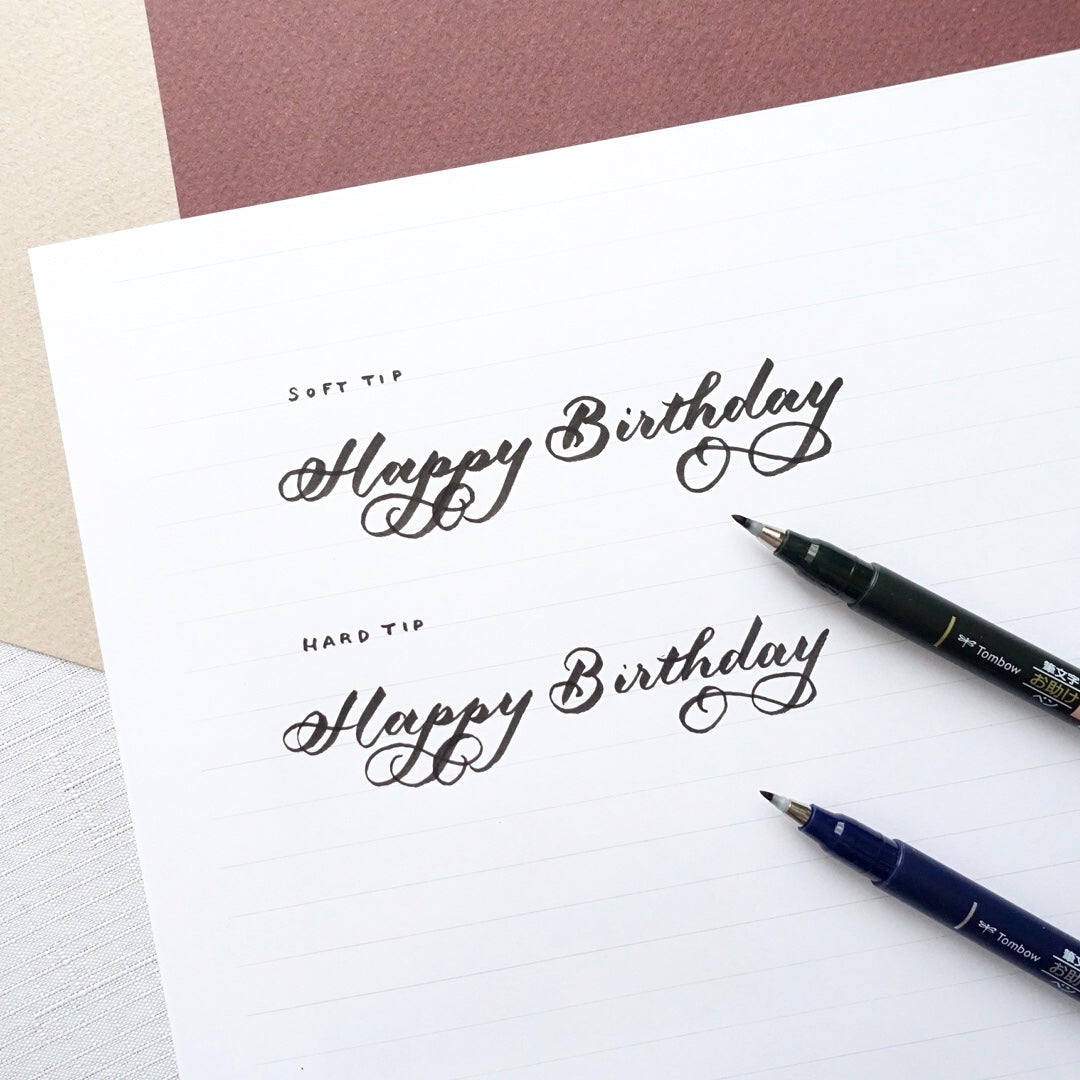 SOFT TIP
Happy Birthday
HARD TIP
Happy Birthday
Tombow
筆文字
お助け
ペン
Tombow
お助